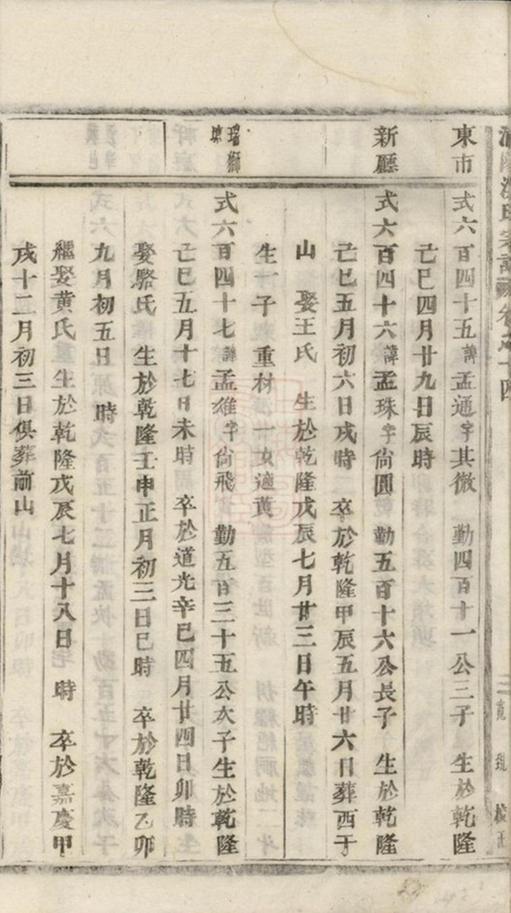 氏宗譜 卷之十四
東市
式六百四十五諱孟通字其徽 勤四百十一公三子 生於乾隆
己巳四月廿九日辰時
新廳
式六百四十六諱孟珠字尙圓 勤五百十六公長子 生於乾隆
己巳五月初六日戌時 卒於乾隆甲辰五月廿六日葬西于
山 娶王氏 生於乾隆戊辰七月廿三日午時
生一子 重材 一女適黄
瑞獅
式六百四十七諱孟雄字尙飛 勤五百三十五公次子生於乾隆
己巳五月十七日未時 卒於道光辛巳四月廿四日卯時
娶駱氏 生於乾隆壬申正月初三日巳時 卒於乾隆乙卯
九月初五日 時
繼娶黄氏 生於乾隆戊辰七月十八日 時 卒於嘉慶甲
戌十二月初三日俱葬前山